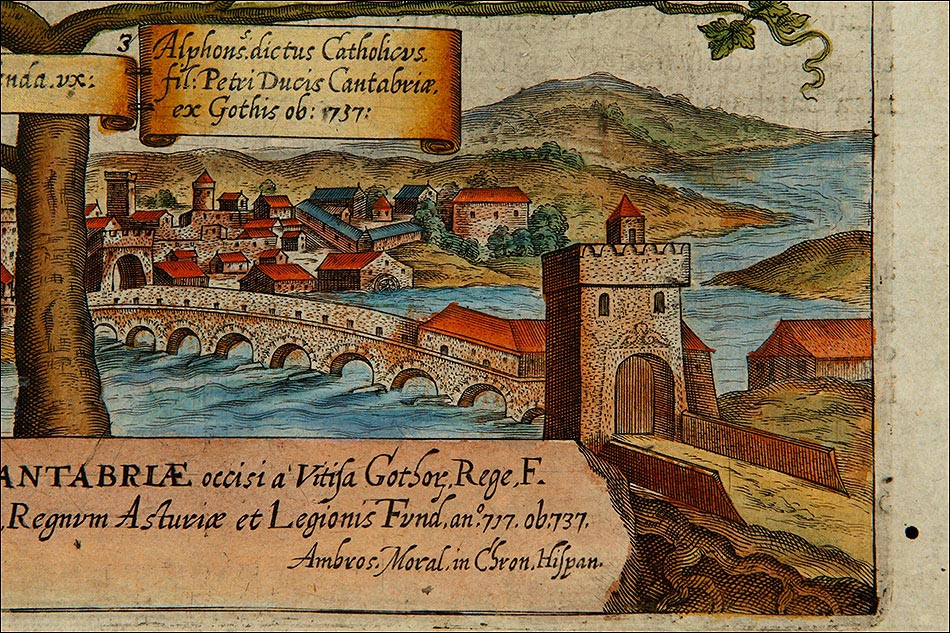 3
Alphons. dictus Catholicus.
fil: Petri Ducis Cantabriæ.
ex Gothis ob: 737:
nda. vx:
ANTABRIÆ occisi a Vitisa Gothor, Rege, F.
Regnvm Asturiæ et Legionis Fvnd, an.º 717. ob. 737.
Ambros. Moral, in Chron, Hispan.